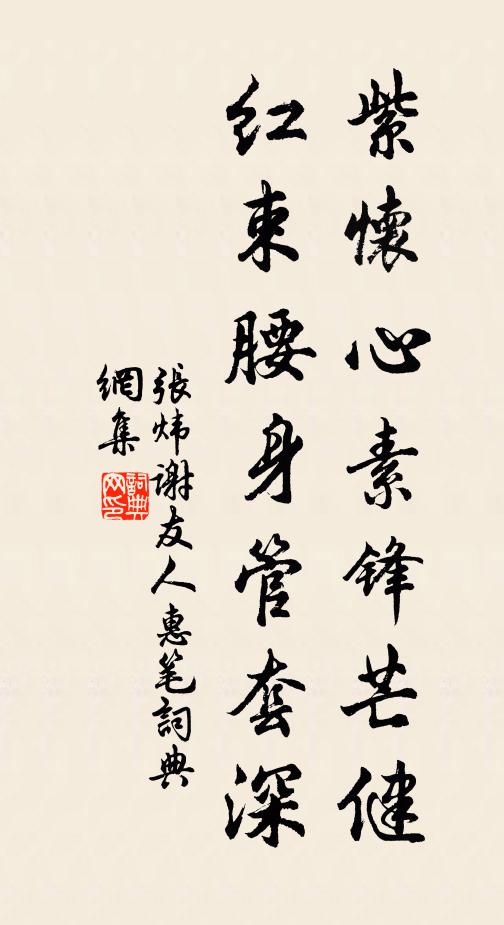 紫懷心素鋒芒健
紅束腰身管套深
張炜谢友人惠笔詞典
網集
詞典
网印